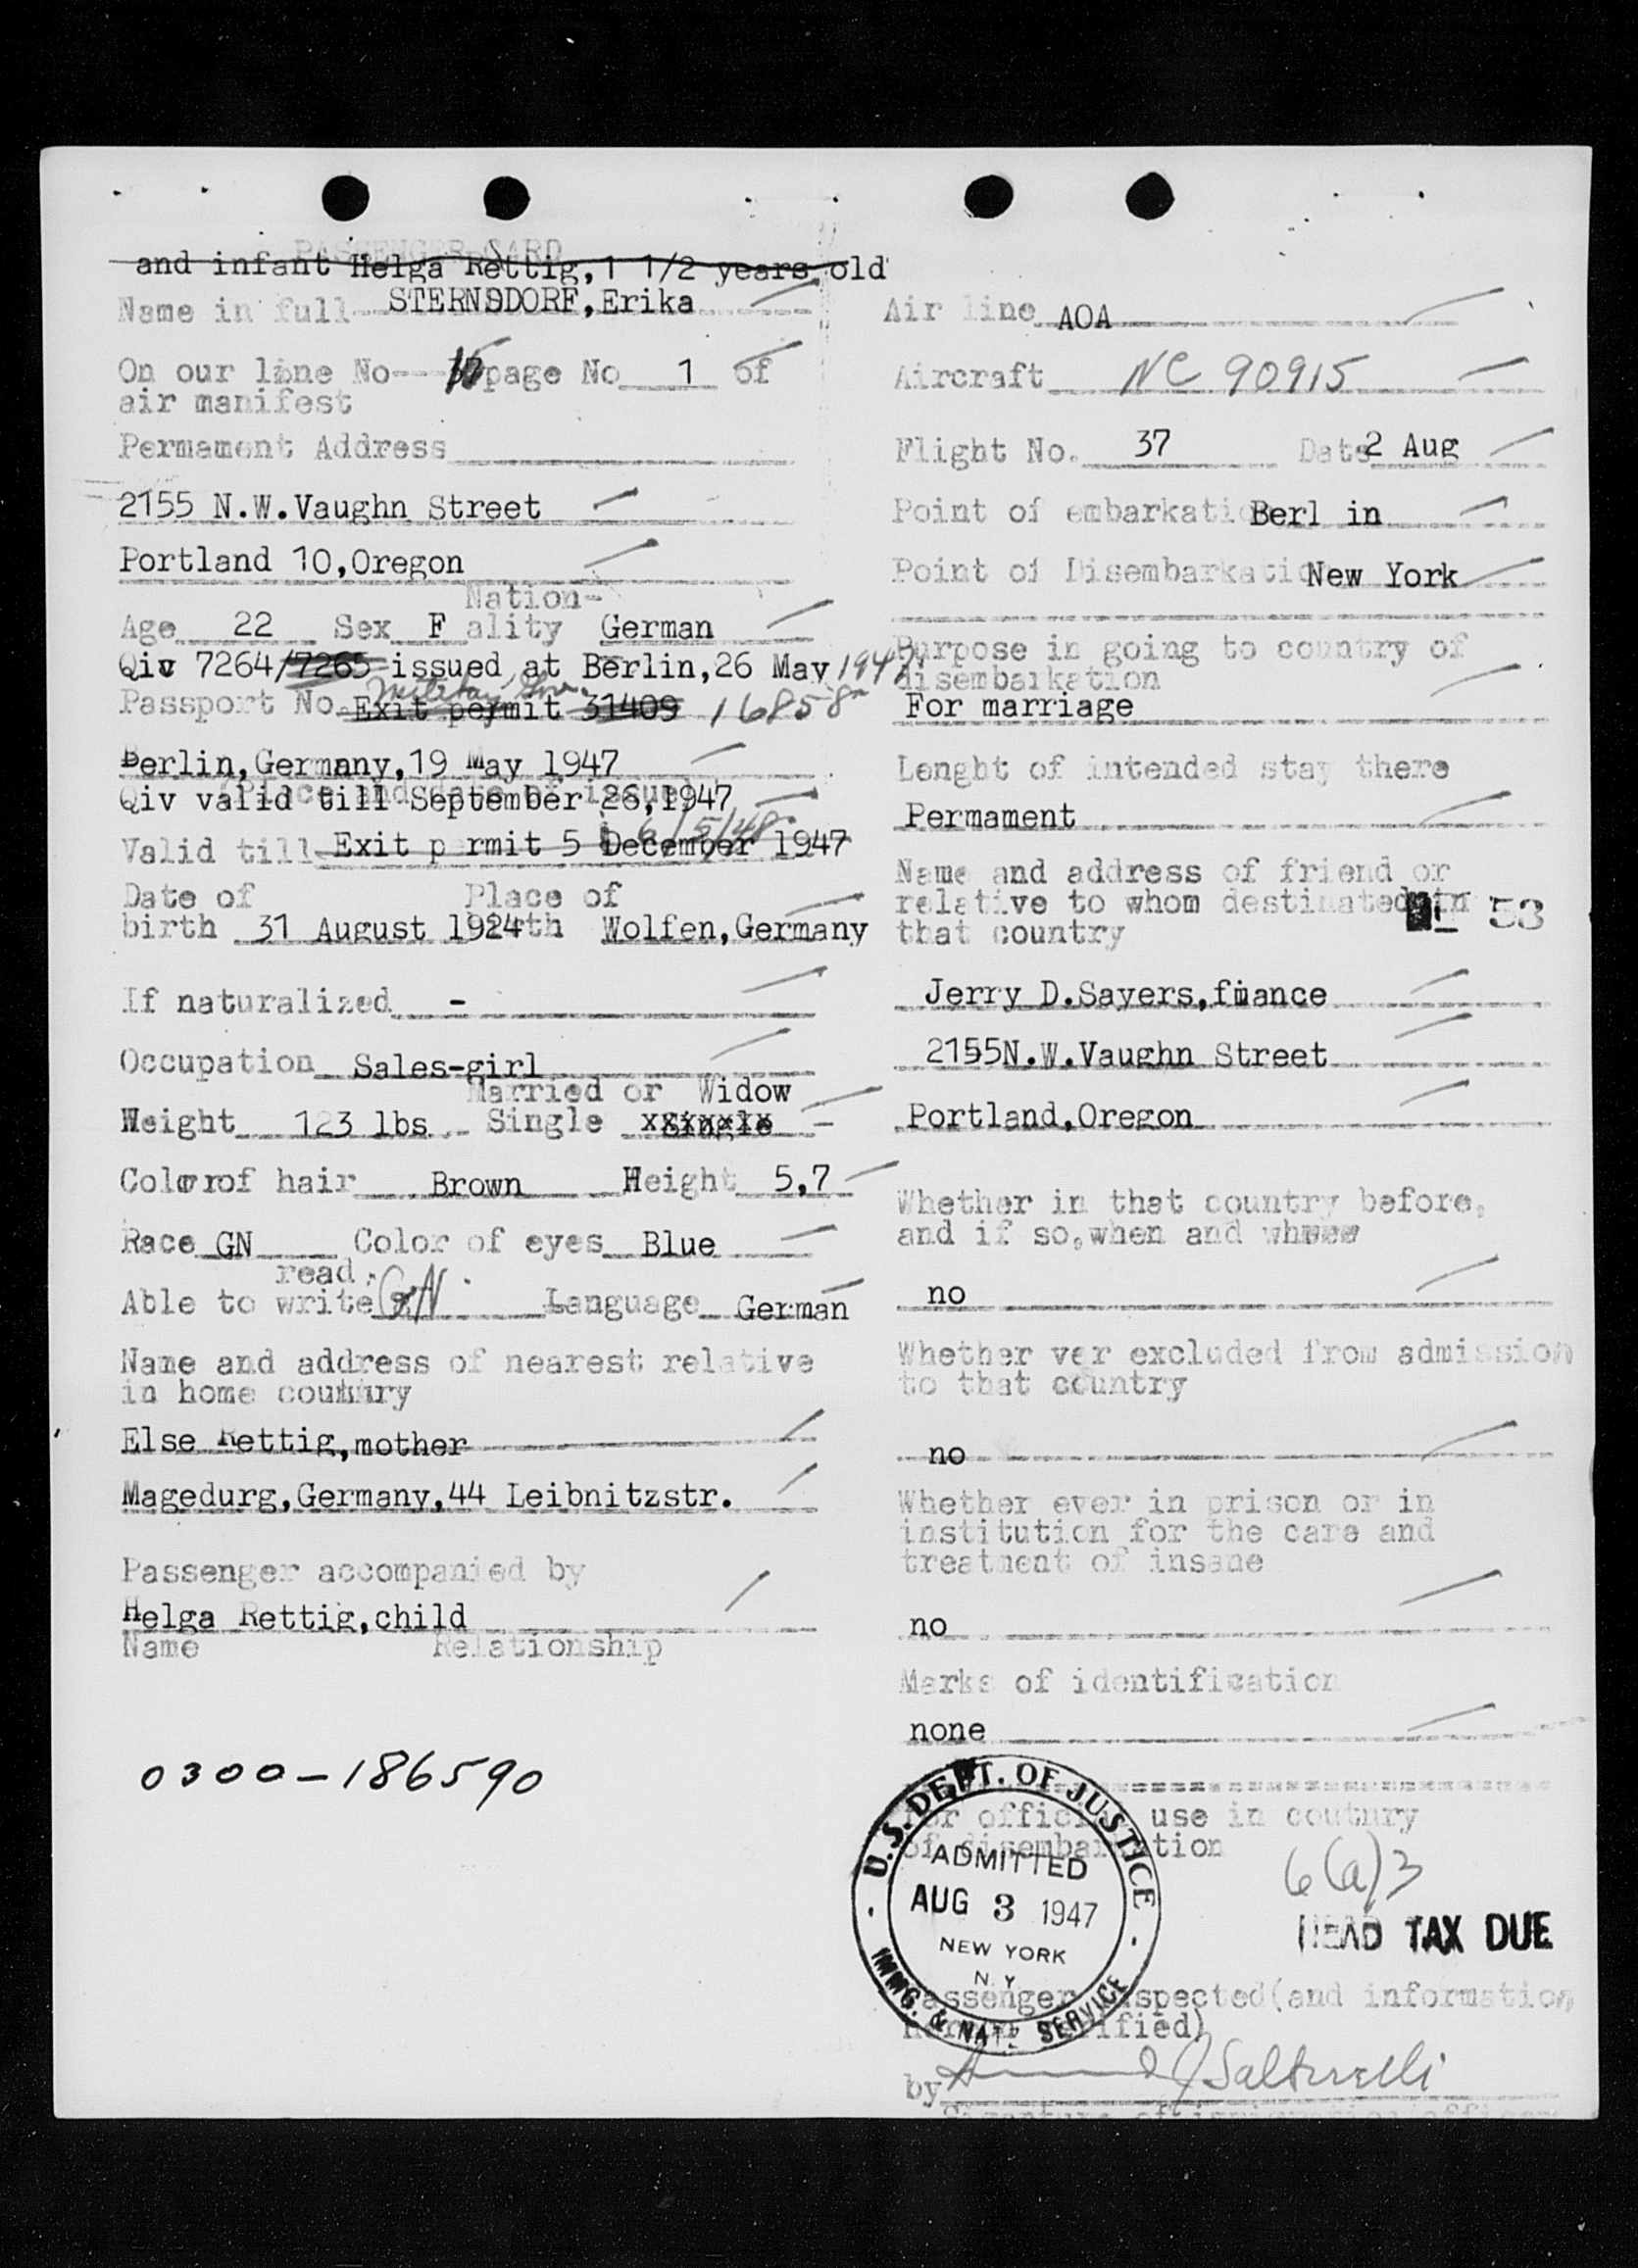 PASSENGER CARD
and infant Helga Rettig, 1 1/2 years old
Name in full STERNSDORF, Erika
On our line No page No 1 of
air manifest
Permament Address
2155 N.W.Vaughn Street
Portland 10,Oregon
Nation-
Age 22 Sex F ality German
Qiv 7264/7265 issued at Berlin,26 May 1947
Passport No. Exit permit 31409 16858
Berlin,Germany,19 May 1947
Qiv valid till September 26,1947
6/5/48
Valid till Exit p rmit 5 December 1947
Date of Place of
birth 31 August 1924 th Wolfen,Germany
If naturalized -
Occupation Sales-girl
Married or Widow
Weight 123 lbs Single xxxxxxx
Color of hair Brown Height 5,7
Race GN Color of eyes Blue
read
Able to write GN Language German
Name and address of nearest relative
in home country
Else Rettig,mother
Magedurg,Germany,44 Leibnitzstr.
Passenger accompanied by
Helga Rettig,child
Name Relationship
0300-186590
Air line AOA
Aircraft NC 90915
Flight No. 37 Date 2 Aug
Point of embarkati Berl in
Point of Disembarkatio New York
Purpose in going to country of
disembarkation
For marriage
Lenght of intended stay there
Permament
Name and address of friend or
relative to whom destinated in
that country
53
Jerry D.Sayers,fiance
2155N.W.Vaughn Street
Portland,Oregon
Whether in that country before,
and if so,when and where
no
Whether ver excluded from admission
to that country
no
Whether ever in prison or in
institution for the care and
treatment of insane
no
Marks of identification
none
For official use in coutnry
of disembarkation
6(a)3
HEAD TAX DUE
U.S. DEPT. OF JUSTICE
ADMITTED
AUG 3 1947
NEW YORK
N.Y.
IMMG. & NAT. SERVICE
Passenger inspected(and information
verified)
by J Salturelli